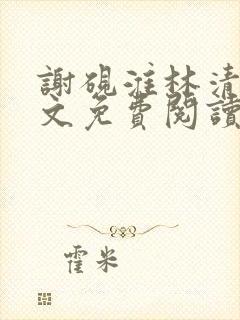 謝硯漼林清
文免費閱讀
霍米